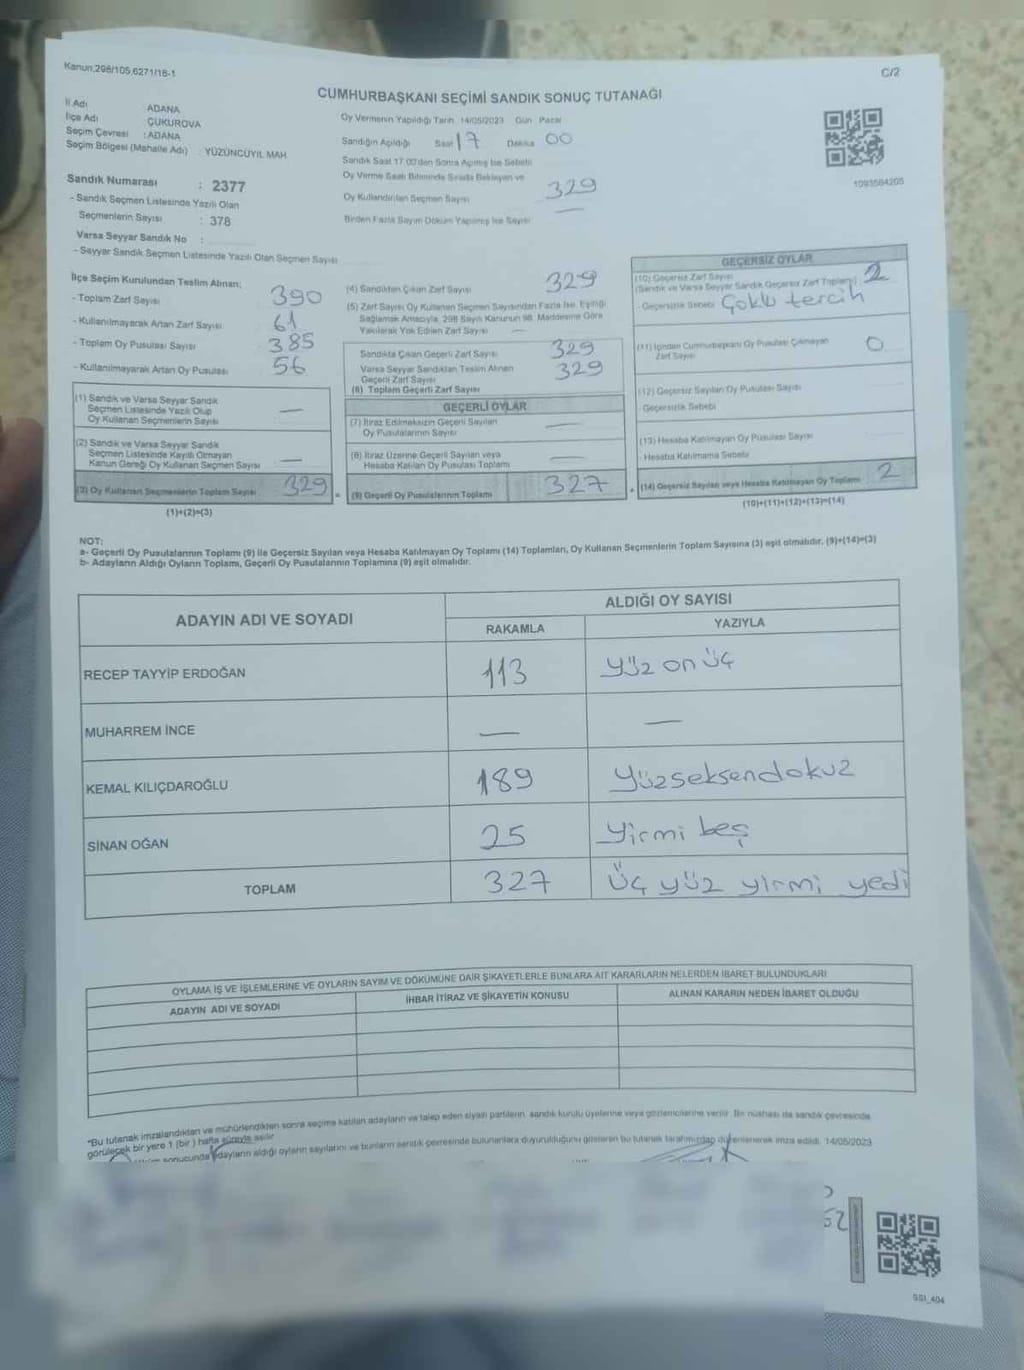 Kanun,298/105,6271/16-1
C/2
CUMHURBAŞKANI SEÇİMİ SANDIK SONUÇ TUTANAĞI
İl Adı ADANA
İlçe Adı ÇUKUROVA
Seçim Çevresi : ADANA
Seçim Bölgesi (Mahalle Adı) : YÜZÜNCÜYIL MAH
Sandık Numarası : 2377
- Sandık Seçmen Listesinde Yazılı Olan
Seçmenlerin Sayısı : 378
Varsa Seyyar Sandık No :
- Seyyar Sandık Seçmen Listesinde Yazılı Olan Seçmen Sayısı
Oy Vermenin Yapıldığı Tarih 14/05/2023 Gün Pazar
Sandığın Açıldığı Saat 17 Dakika 00
Sandık Saat 17.00'den Sonra Açılmış İse Sebebi
Oy Verme Saati Bitiminde Sırada Bekleyen ve
Oy Kullandırılan Seçmen Sayısı 329
Birden Fazla Sayım Döküm Yapılmış İse Sayısı —
1093584205
İlçe Seçim Kurulundan Teslim Alınan;
- Toplam Zarf Sayısı 390
- Kullanılmayarak Artan Zarf Sayısı 61
- Toplam Oy Pusulası Sayısı 385
- Kullanılmayarak Artan Oy Pusulası 56
(1) Sandık ve Varsa Seyyar Sandık
Seçmen Listesinde Yazılı Olup
Oy Kullanan Seçmenlerin Sayısı —
(2) Sandık ve Varsa Seyyar Sandık
Seçmen Listesinde Kayıtlı Olmayan
Kanun Gereği Oy Kullanan Seçmen Sayısı —
(3) Oy Kullanan Seçmenlerin Toplam Sayısı 329
(1)+(2)=(3)
(4) Sandıktan Çıkan Zarf Sayısı 329
(5) Zarf Sayısı Oy Kullanan Seçmen Sayısından Fazla İse, Eşitliği
Sağlamak Amacıyla, 298 Sayılı Kanunun 98. Maddesine Göre
Yakılarak Yok Edilen Zarf Sayısı —
Sandıkta Çıkan Geçerli Zarf Sayısı 329
Varsa Seyyar Sandıktan Teslim Alınan
Geçerli Zarf Sayısı 329
(6) Toplam Geçerli Zarf Sayısı
GEÇERLİ OYLAR
(7) İtiraz Edilmeksizin Geçerli Sayılan
Oy Pusulalarının Sayısı —
(8) İtiraz Üzerine Geçerli Sayılan veya
Hesaba Katılan Oy Pusulası Toplamı —
= (9) Geçerli Oy Pusulalarının Toplamı 327
GEÇERSİZ OYLAR
(10) Geçersiz Zarf Sayısı
(Sandık ve Varsa Seyyar Sandık Geçersiz Zarf Toplamı) 2
- Geçersizlik Sebebi Çoklu tercih
(11) İçinden Cumhurbaşkanı Oy Pusulası Çıkmayan
Zarf Sayısı 0
(12) Geçersiz Sayılan Oy Pusulası Sayısı
- Geçersizlik Sebebi
(13) Hesaba Katılmayan Oy Pusulası Sayısı
- Hesaba Katılmama Sebebi
+ (14) Geçersiz Sayılan veya Hesaba Katılmayan Oy Toplamı 2
(10)+(11)+(12)+(13)=(14)
NOT:
a- Geçerli Oy Pusulalarının Toplamı (9) ile Geçersiz Sayılan veya Hesaba Katılmayan Oy Toplamı (14) Toplamları, Oy Kullanan Seçmenlerin Toplam Sayısına (3) eşit olmalıdır. (9)+(14)=(3)
b- Adayların Aldığı Oyların Toplamı, Geçerli Oy Pusulalarının Toplamına (9) eşit olmalıdır.
ADAYIN ADI VE SOYADI ALDIĞI OY SAYISI
RAKAMLA YAZIYLA
RECEP TAYYİP ERDOĞAN 113 Yüz on üç
MUHARREM İNCE — —
KEMAL KILIÇDAROĞLU 189 Yüzseksendokuz
SİNAN OĞAN 25 Yirmi beş
TOPLAM 327 Üç yüz yirmi yedi
OYLAMA İŞ VE İŞLEMLERİNE VE OYLARIN SAYIM VE DÖKÜMÜNE DAİR ŞİKAYETLERLE BUNLARA AİT KARARLARIN NELERDEN İBARET BULUNDUKLARI
ADAYIN ADI VE SOYADI İHBAR İTİRAZ VE ŞİKAYETİN KONUSU ALINAN KARARIN NEDEN İBARET OLDUĞU
*Bu tutanak imzalandıktan ve mühürlendikten sonra seçime katılan adayların ve talep eden siyasi partilerin, sandık kurulu üyelerine veya gözlemcilerine verilir. Bir nüshası da sandık çevresinde
görülecek bir yere 1 (bir) hafta süreyle asılır
sonucunda adayların aldığı oyların sayılarını ve bunların sandık çevresinde bulunanlara duyurulduğunu gösteren bu tutanak tarafımızdan düzenlenerek imza edildi. 14/05/2023
SSI_404